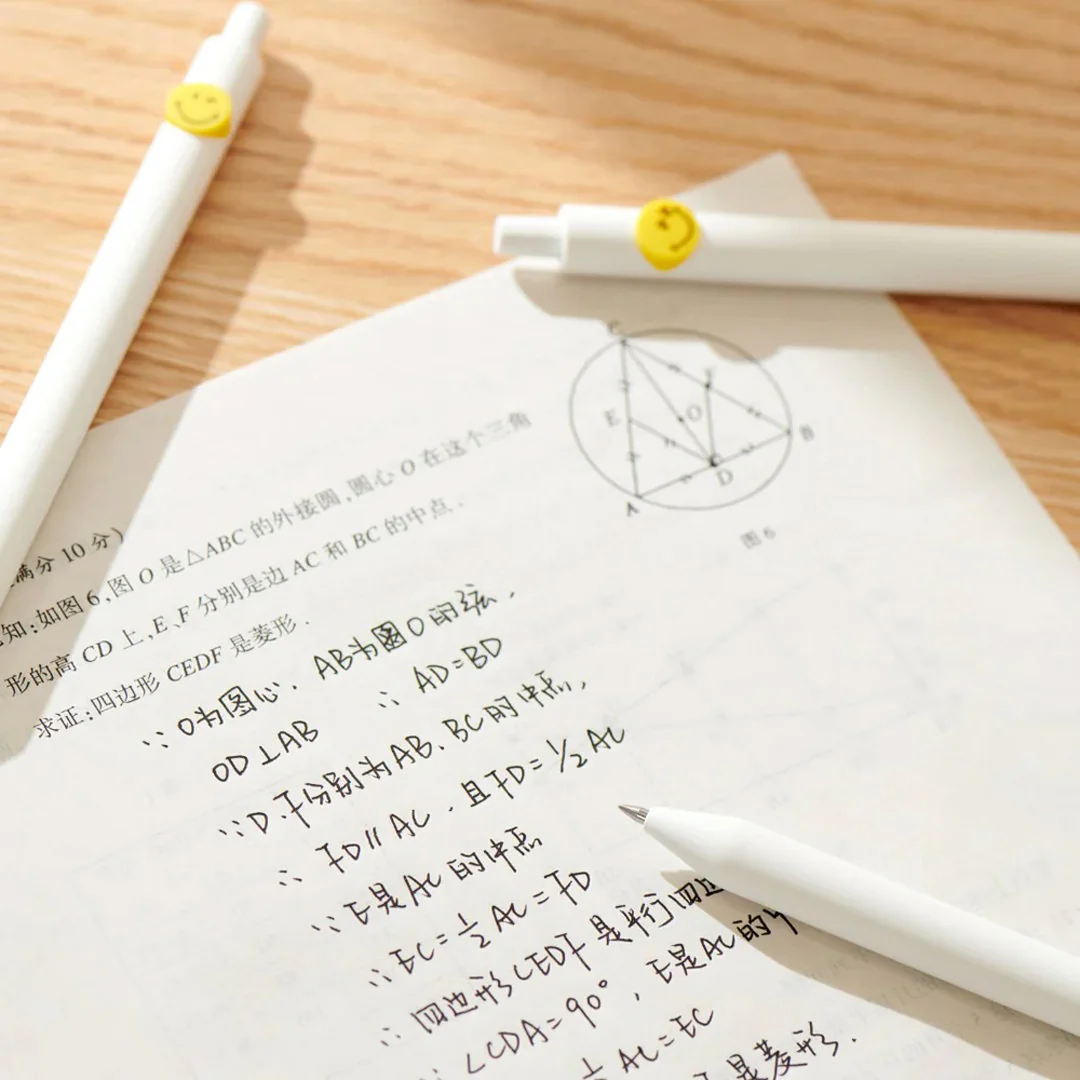 C
F
E
O
B
D
A
图 6
满分 10 分)
知:如图 6,图 O 是△ABC 的外接圆,圆心 O 在这个三角
形的高 CD 上,E、F 分别是边 AC 和 BC 的中点.
求证:四边形 CEDF 是菱形.
∵ O为圆心. AB为圆O的弦.
OD⊥AB ∴ AD=BD
∵D.F分别为AB、BC的中点,
∴ FD∥AC.且FD=½AC
∵E是AC的中点
∴EC=½AC=FD
∴四边形CEDF是平行四边
∵∠CDA=90°,E是AC的
AC=EC
是菱形.